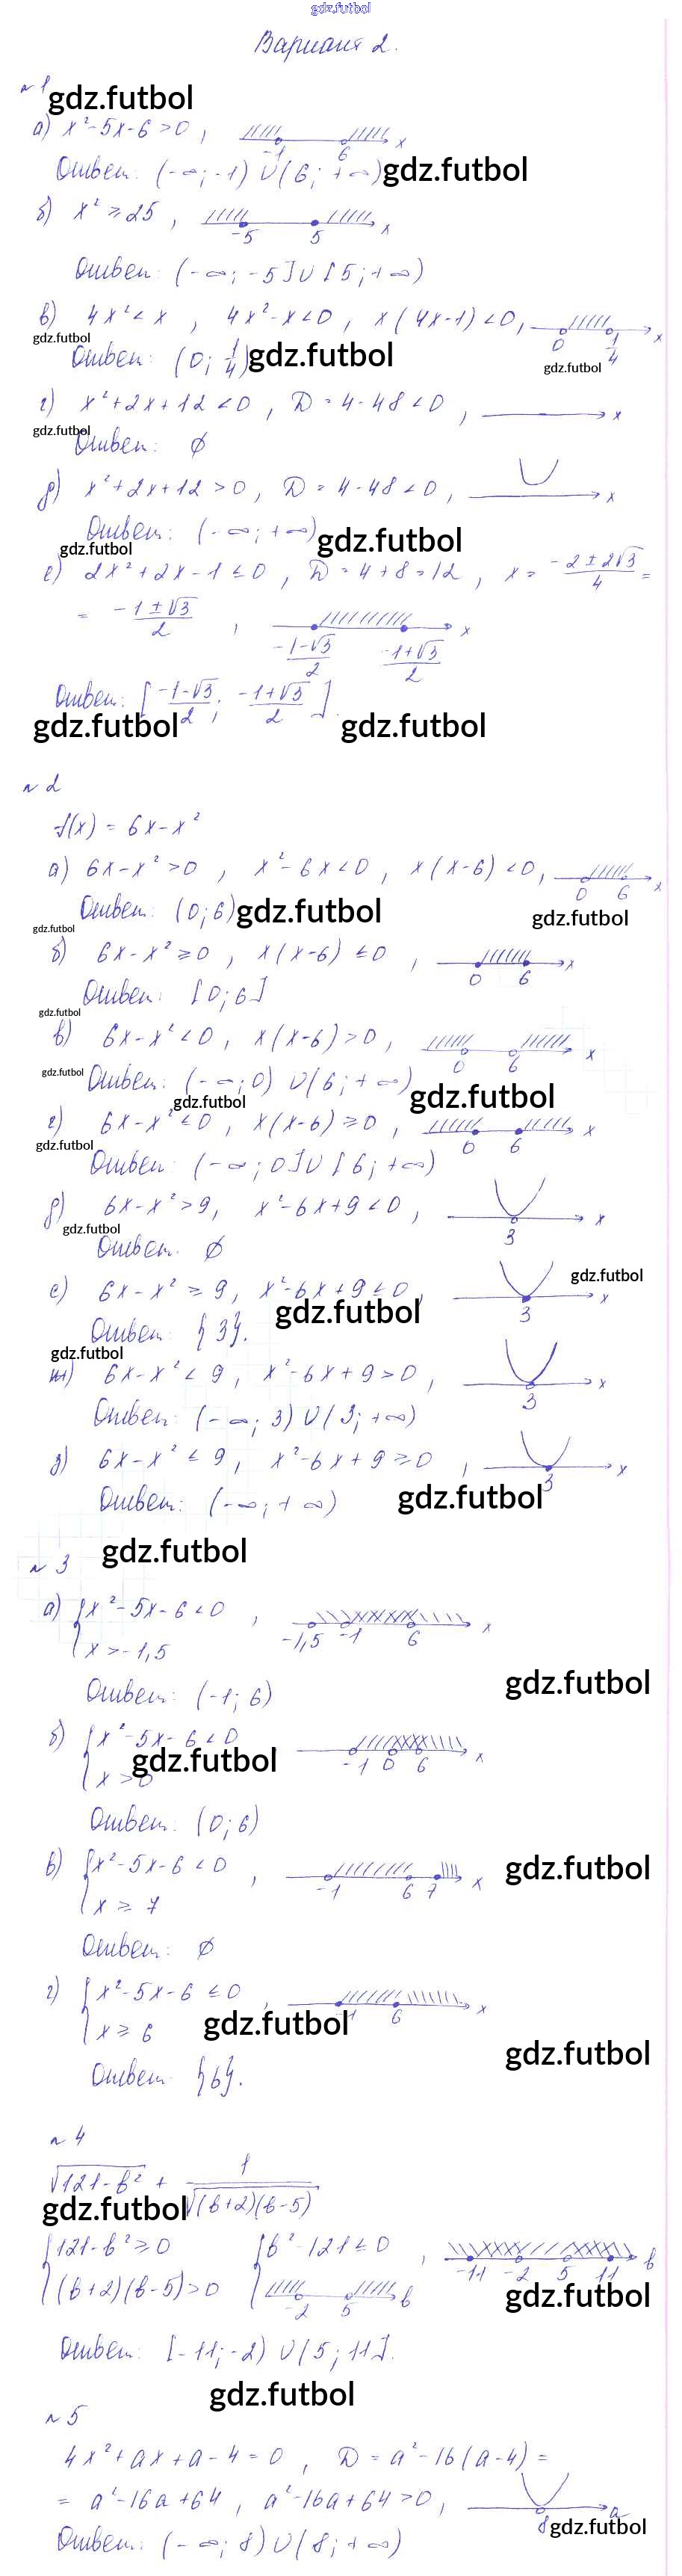 gdz.futbol
Вариант 2.
№ 1 gdz.futbol
а) x² - 5x - 6 > 0 , -1 6 x
Ответ: (-∞; -1) ∪ (6; +∞) gdz.futbol
б) x² ≥ 25 , -5 5 x
Ответ: (-∞; -5] ∪ [5; +∞)
в) 4x² < x , 4x² - x < 0 , x(4x-1) < 0 , 0 1/4 x
gdz.futbol
Ответ: (0; 1/4) gdz.futbol gdz.futbol
г) x² + 2x + 12 < 0 , D = 4 - 48 < 0 , x
gdz.futbol
Ответ: ∅
д) x² + 2x + 12 > 0 , D = 4 - 48 < 0 , x
Ответ: (-∞; +∞) gdz.futbol
gdz.futbol
е) 2x² + 2x - 1 ≤ 0 , D = 4 + 8 = 12 , x = (-2 ± 2√3)/4 =
= (-1 ± √3)/2 , (-1-√3)/2 (-1+√3)/2 x
Ответ: [(-1-√3)/2 ; (-1+√3)/2].
gdz.futbol gdz.futbol
№ 2
f(x) = 6x - x²
а) 6x - x² > 0 , x² - 6x < 0 , x(x-6) < 0 , 0 6 x
Ответ: (0; 6) gdz.futbol gdz.futbol
gdz.futbol
б) 6x - x² ≥ 0 , x(x-6) ≤ 0 , 0 6 x
Ответ: [0; 6]
gdz.futbol
в) 6x - x² < 0 , x(x-6) > 0 , 0 6 x
gdz.futbol Ответ: (-∞; 0) ∪ (6; +∞) gdz.futbol
gdz.futbol
г) 6x - x² ≤ 0 , x(x-6) ≥ 0 , 0 6 x
gdz.futbol
Ответ: (-∞; 0] ∪ [6; +∞)
д) 6x - x² > 9 , x² - 6x + 9 < 0 , 3 x
gdz.futbol
Ответ. ∅
е) 6x - x² ≥ 9 , x² - 6x + 9 ≤ 0 , 3 x gdz.futbol
gdz.futbol
Ответ: {3}.
gdz.futbol
ж) 6x - x² < 9 , x² - 6x + 9 > 0 , 3 x
Ответ: (-∞; 3) ∪ (3; +∞)
з) 6x - x² ≤ 9 , x² - 6x + 9 ≥ 0 , 3 x
Ответ: (-∞; +∞) gdz.futbol
gdz.futbol
№ 3
а) { x² - 5x - 6 < 0 , -1,5 -1 6 x
x > -1,5
Ответ: (-1; 6) gdz.futbol
б) { x² - 5x - 6 < 0 -1 0 6 x
x > 0 gdz.futbol
Ответ: (0; 6)
в) { x² - 5x - 6 < 0 , -1 6 7 x gdz.futbol
x ≥ 7
Ответ: ∅
г) { x² - 5x - 6 ≤ 0 , -1 6 x
x ≥ 6 gdz.futbol
gdz.futbol
Ответ {6}.
№ 4
√(121 - b²) + 1/√((b+2)(b-5))
gdz.futbol
{ 121 - b² ≥ 0 { b² - 121 ≤ 0 , -11 -2 5 11 b
(b+2)(b-5) > 0 -2 5 b gdz.futbol
Ответ: [-11; -2) ∪ (5; 11].
gdz.futbol
№ 5
4x² + ax + a - 4 = 0 , D = a² - 16(a-4) =
= a² - 16a + 64 , a² - 16a + 64 > 0 , 8 a
gdz.futbol
Ответ: (-∞; 8) ∪ (8; +∞)